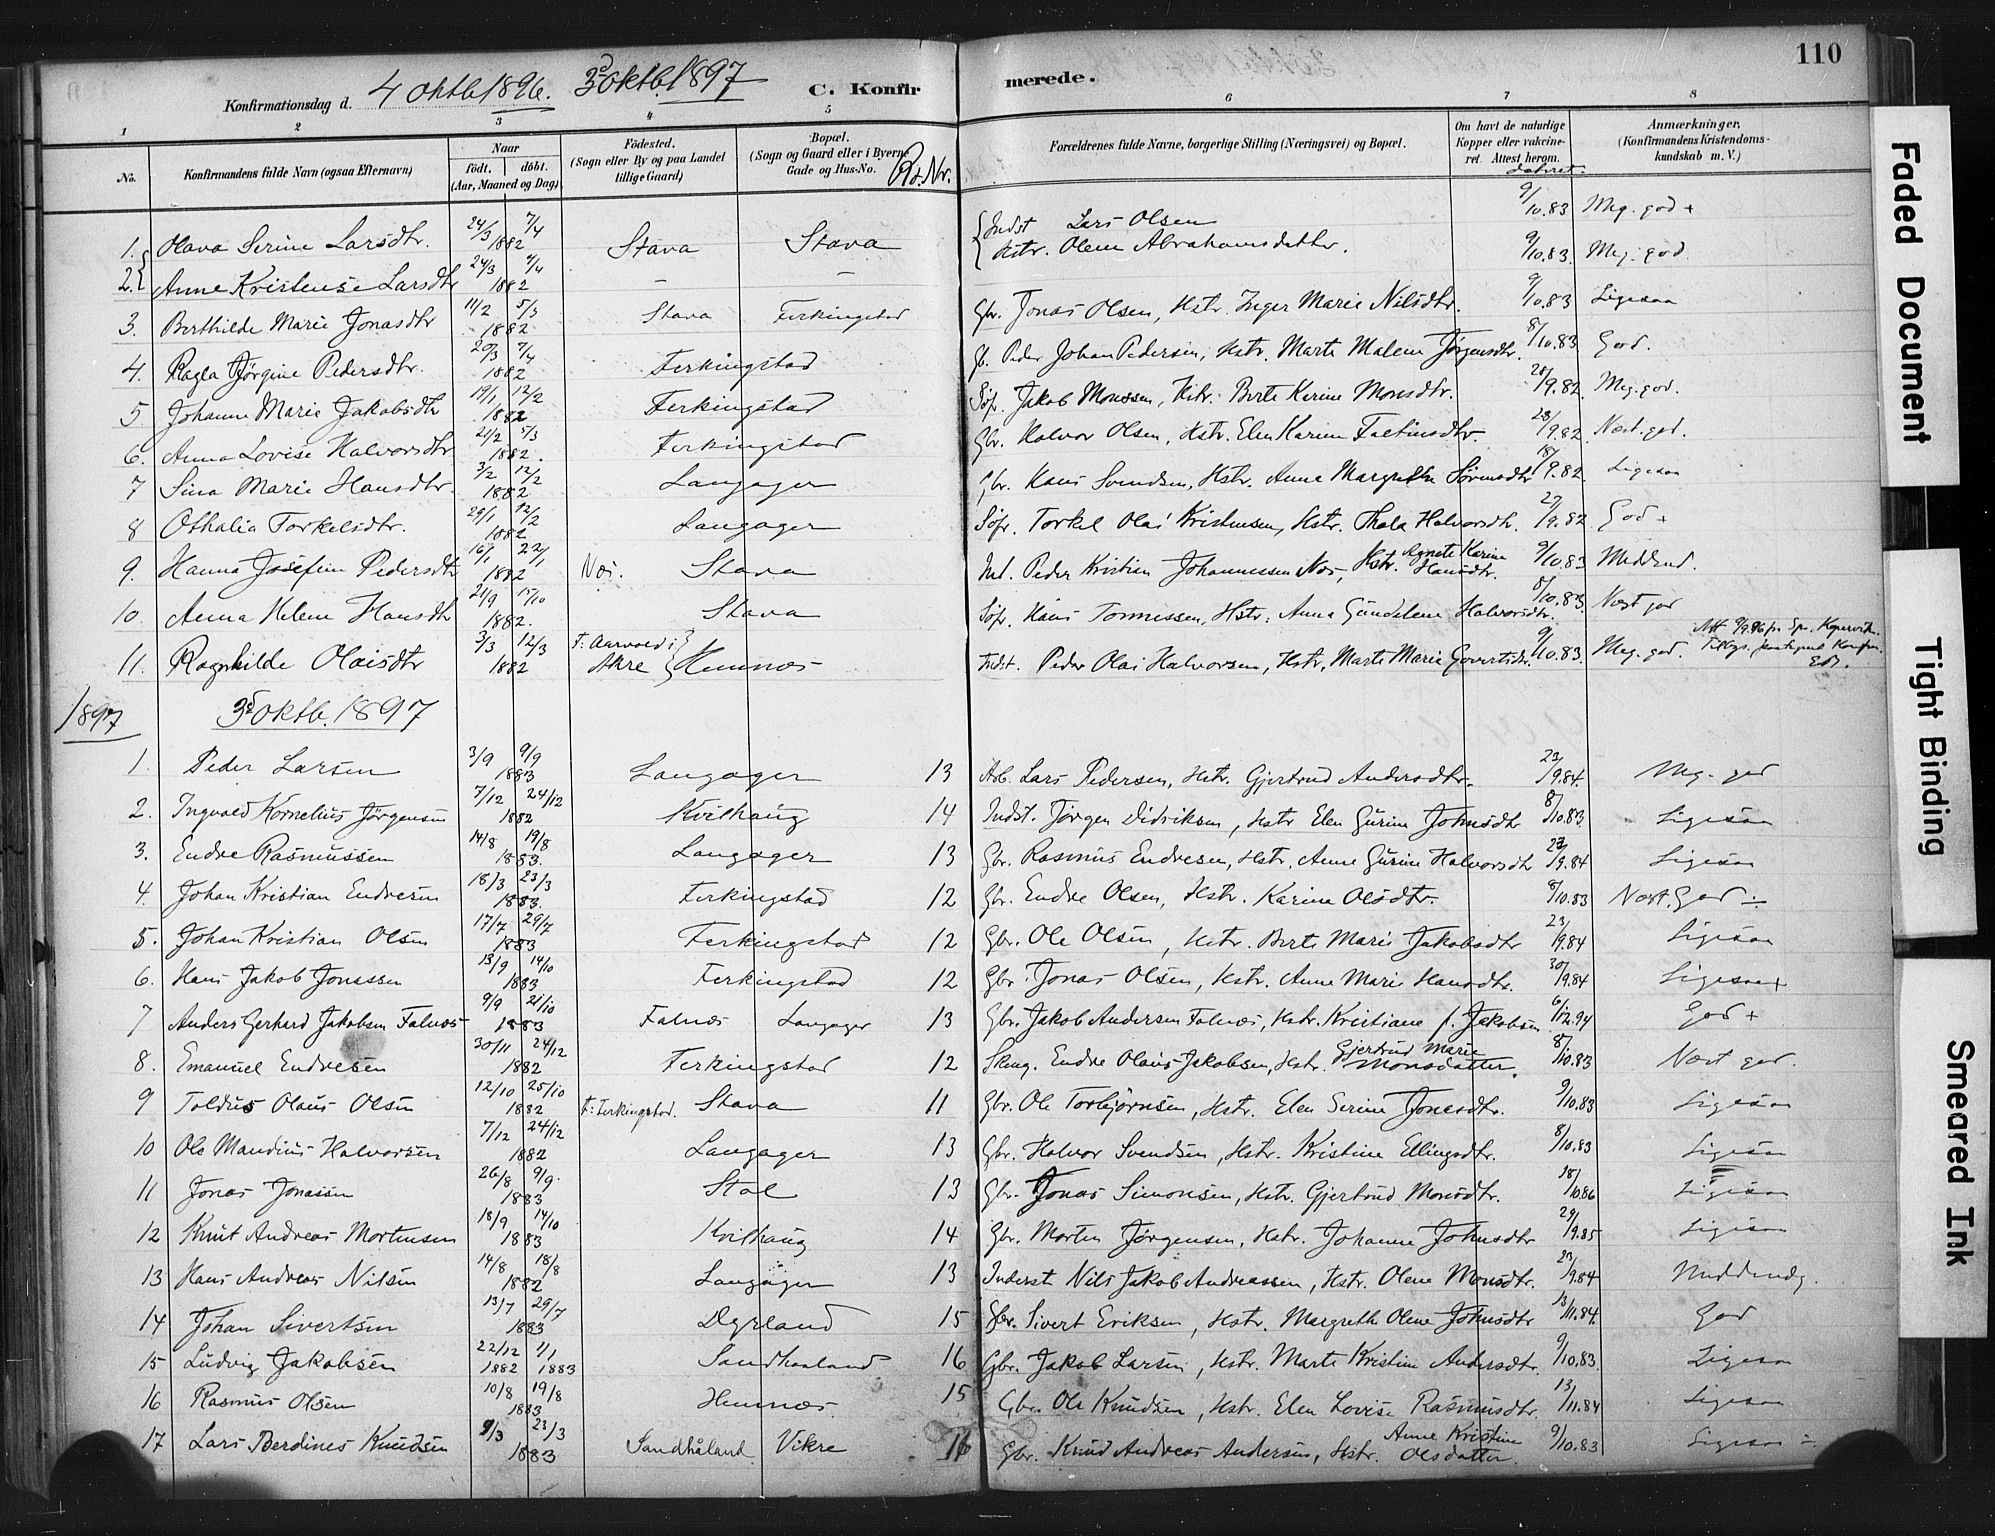 110
Konfirmationsdag d. 4 Oktb 1896. 3d Oktb. 1897 C. Konfirmerede.
1 2 3 4 5 6 7 8
No. Konfirmandens fulde Navn (ogsaa Efternavn) Naar født. døbt. (Aar, Maaned og Dag) Fødested. (Sogn eller By og paa Landet tillige Gaard) Bopæl. (Sogn og Gaard eller i Byerne Gade og Hus-No. Ro. Nr. Forældrenes fulde Navne, borgerlige Stilling (Næringsvei) og Bopæl. Om havt de naturlige Kopper eller vakcineret. Attest herom. dateret. Anmærkninger. (Konfirmandens Kristendomskundskab m. V.)
1. Olava Serine Larsdtr. 24/3 7/4 1882 Stava Stava Indst Lars Olsen Hstr. Olene Abrahamsdatter. 9/10.83 Meg. god +
2. Anne Kristense Larsdtr 24/3 7/4 1882 – – 9/10.83. Meg. god.
3. Berthilde Marie Jonasdtr 11/2 5/3 1882 Stava Ferkingstad Gbr. Jonas Olsen, Hstr. Inger Marie Nilsdtr. 9/10.83 Ligesaa
4. Ragla Jørgine Pedersdtr. 20/3 7/4 1882 Ferkingstad Gb. Peder Johan Pedersen, Hstr. Marte Malene Jørgensdtr. 8/10.83 God.
5 Johanne Marie Jakobsdtr 19/1 12/2 1882 Ferkingstad Søf. Jakob Monssen, Hstr. Berte Karine Monsdtr. 28/9.82. Meg. god.
6. Anna Lovise Halvorsdtr 21/2 5/3 1882. Ferkingstad Gbr. Halvor Olsen, Hstr. Elen Karine Faltinsdtr. 28/9.82 Næst. god.
7 Sina Marie Hansdtr. 3/2 12/2 1882 Langager Gbr. Hans Svendsen, Hstr. Anne Margrethe Sørensdtr 18/9.82 Ligesaa
8 Othalia Torkelsdtr. 29/1 12/2 1882 Langager Søf. Torkel Olai Kristensen, Hstr. Thala Halvorsdtr. 27/9.82 God +
9. Hanna Josefine Pedersdtr 16/1 22/1 1882 Næs. Stava Ind. Peder Kristian Johannessen Næs, Hstr. Agnete Karine Hansdtr. 9/10.83 Middend.
10. Anna Helene Hansdtr 21/9 15/10 1882. Stava Søf. Hans Tønnessen, Hstr. Anna Gundelene Halvorsdtr. 8/10.83. Næst god
11. Ragnhilde Olaisdtr 3/3 12/3 1882 F: Aarvold i Akre Hemnæs Indst. Peder Olai Halvorsen, Hstr. Marte Marie Govertsdtr. 9/10.83. Meg. god.
1897 3d Oktb. 1897
1. Peder Larsen 3/9 9/9 1883 Langager 13 Arb. Lars Pedersen, Hstr. Gjertrud Andersdtr. 23/9.84. Meg. god
2. Ingvald Kornelius Jørgensen 7/12 24/12 1882 Kvilhaug 14 Indst. Jørgen Didriksen, Hstr Elen Gurine Johnsdtr 8/10.83 Ligesaa
3. Endre Rasmussen 14/8 19/8 1883. Langager 13 Gbr. Rasmus Endresen, Hstr. Anne Gurine Halvorsdtr 23/9.84 Ligesaa
4. Johan Kristian Endresen 18/3 23/3 1883. Ferkingstad 12 Gbr. Endre Olsen, Hstr. Karine Olsdtr. 8/10.83 Næst. God ÷
5. Johan Kristian Olsen 17/7 29/7 1883 Ferkingstad 12 Gbr. Ole Olsen, Hstr. Berte Marie Jakobsdtr 23/9.84 Ligesaa
6. Hans Jakob Jonassen 13/9 14/10 1883 Ferkingstad 12 Gbr. Jonas Olsen, Hstr. Anne Marie Hansdtr. 30/9.84 Ligesaa +
7 Anders Gerhard Jakobsen Falnæs 9/9 21/10 1883 Falnæs Langager 13 Gbr. Jakob Andersen Falnæs, Hstr. Kristiane f. Jakobsen 6/12.94 God +
8. Emanuel Endresen 30/11 24/12 1882 Ferkingstad 12 Skrog. Endre Olaus Jakobsen, Hstr. Gjertrud Marie Monsdatter. 8/10.83 Næst god.
9 Toldus Olaus Olsen 12/10 25/10 1882 F: Ferkingstad. Stava 11 Gbr. Ole Torbjørnsen, Hstr. Elen Serine Jonasdtr. 9/10.83 Ligesaa
10 Ole Mandius Halvorsen 7/12 24/12 1882 Langager 13 Gbr. Halvor Svendsen, Hstr. Kristine Ellingsdtr. 8/10.83 Ligesaa
11 Jonas Jonassen 26/8 9/9. 1883 Stol 13 Gbr. Jonas Simonsen, Hstr. Gjertrud Monsdtr. 18/10.86 Ligesaa
12 Knut Andreas Mortensen 18/9 14/10 1883 Kvilhaug 14 Gbr. Morten Jørgensen, Hstr. Johanne Johnsdtr 29/9.85 Ligesaa
13 Hans Andreas Nilsen 14/8 18/8 1882 Langager 13 Inderst Nils Jakob Andreassen, Hstr. Olene Monsdtr. 23/9.84 Middendg.
14 Johan Sivertsen 13/7 29/7 1883 Dyrland 15 Gbr. Sivert Eriksen, Hstr. Margrethe Olene Johnsdtr 13/11.84. God
15 Ludvig Jakobsen 22/12 1/1 1882 1883 Sandhaaland 16 Gbr. Jakob Larsen, Hstr. Marte Kristine Andersdtr. 9/10.83. Ligesaa
16 Rasmus Olsen 10/8 19/8 1883 Hemnæs. 15 Gbr. Ole Knudsen, Hstr. Elen Lovise Rasmusdtr. 13/11.84 Ligesaa
17 Lars Berdines Knudsen 9/3 23/3 1883 Sandhåland Vikre 16 Gbr. Knud Andreas Andersen, Hstr. Anne Kristine Olsdatter. 9/10.83 Ligesaa ÷
Faded Document
Tight Binding
Smeared Ink